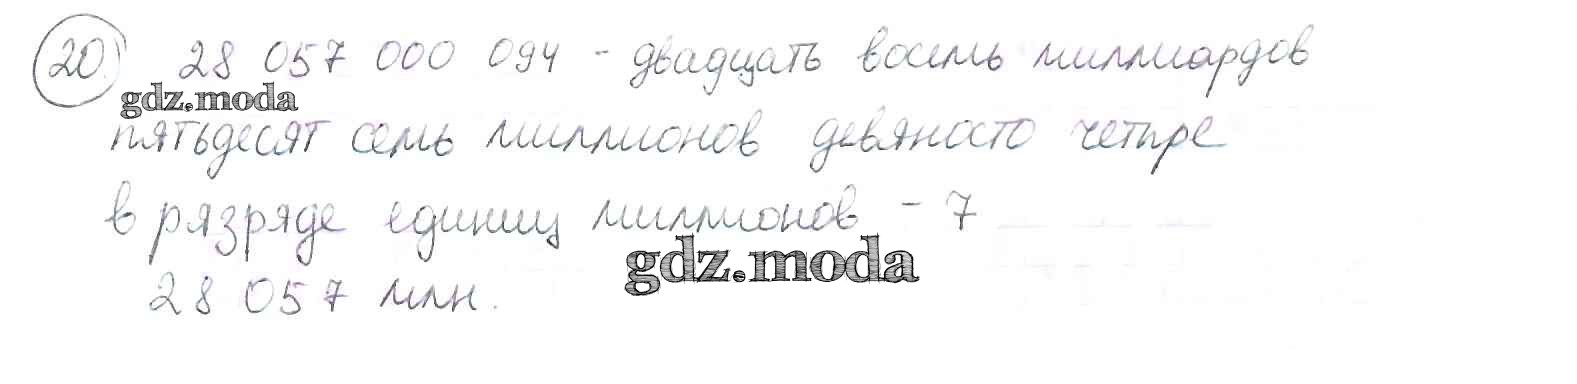 20. 28 057 000 094 - двадцать восемь миллиардов
gdz.moda
пятьдесят семь миллионов девяносто четыре
в рязряде единиц миллионов - 7
gdz.moda
28 057 млн.